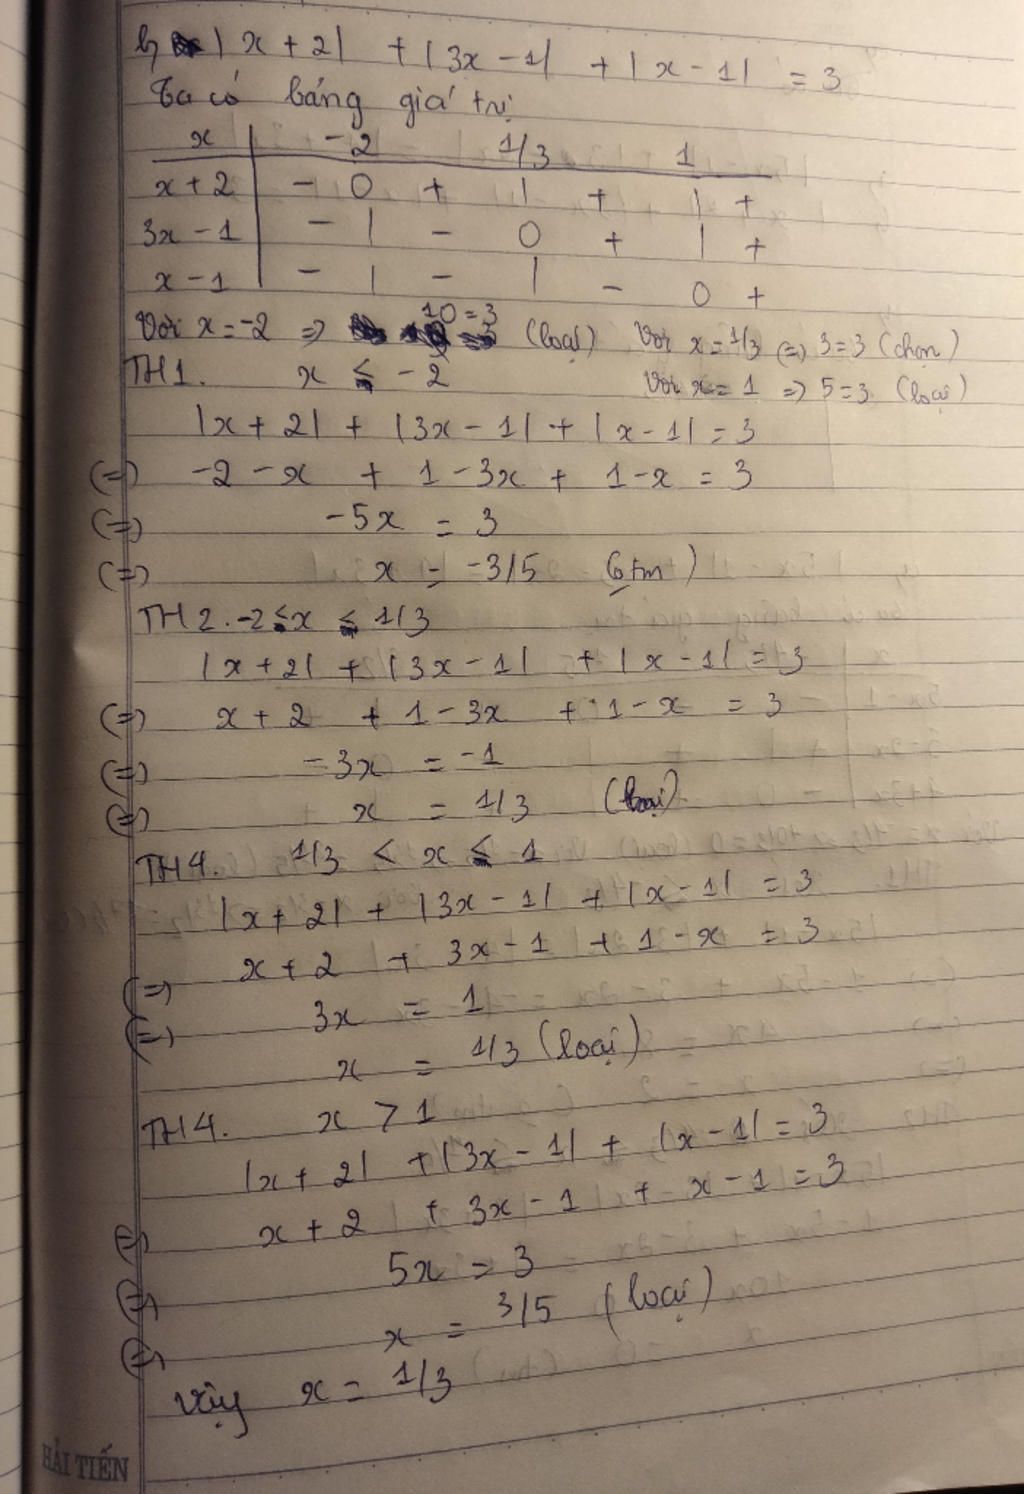 b, |x + 2| + |3x - 1| + |x - 1| = 3
Ta có bảng giá trị
x -2 1/3 1
x + 2 - 0 + | + | +
3x - 1 - | - 0 + | +
x - 1 - | - | - 0 +
Với x = -2 => 10 = 3 (loại) Với x = 1/3 (=) 3 = 3 (chọn)
TH1. x ≤ -2 Với x = 1 => 5 = 3 (loại)
|x + 2| + |3x - 1| + |x - 1| = 3
(=) -2 - x + 1 - 3x + 1 - x = 3
(=) -5x = 3
(=) x = -3/5 (ktm)
TH2. -2 ≤ x ≤ 1/3
|x + 2| + |3x - 1| + |x - 1| = 3
(=) x + 2 + 1 - 3x + 1 - x = 3
(=) -3x = -1
(=) x = 1/3 (loại)
TH4. 1/3 < x ≤ 1
|x + 2| + |3x - 1| + |x - 1| = 3
(=) x + 2 + 3x - 1 + 1 - x = 3
(=) 3x = 1
x = 1/3 (loại)
TH4. x > 1
|x + 2| + |3x - 1| + |x - 1| = 3
(=) x + 2 + 3x - 1 + x - 1 = 3
(=) 5x = 3
(=) x = 3/5 (loại)
Vậy x = 1/3
HẢI TIẾN